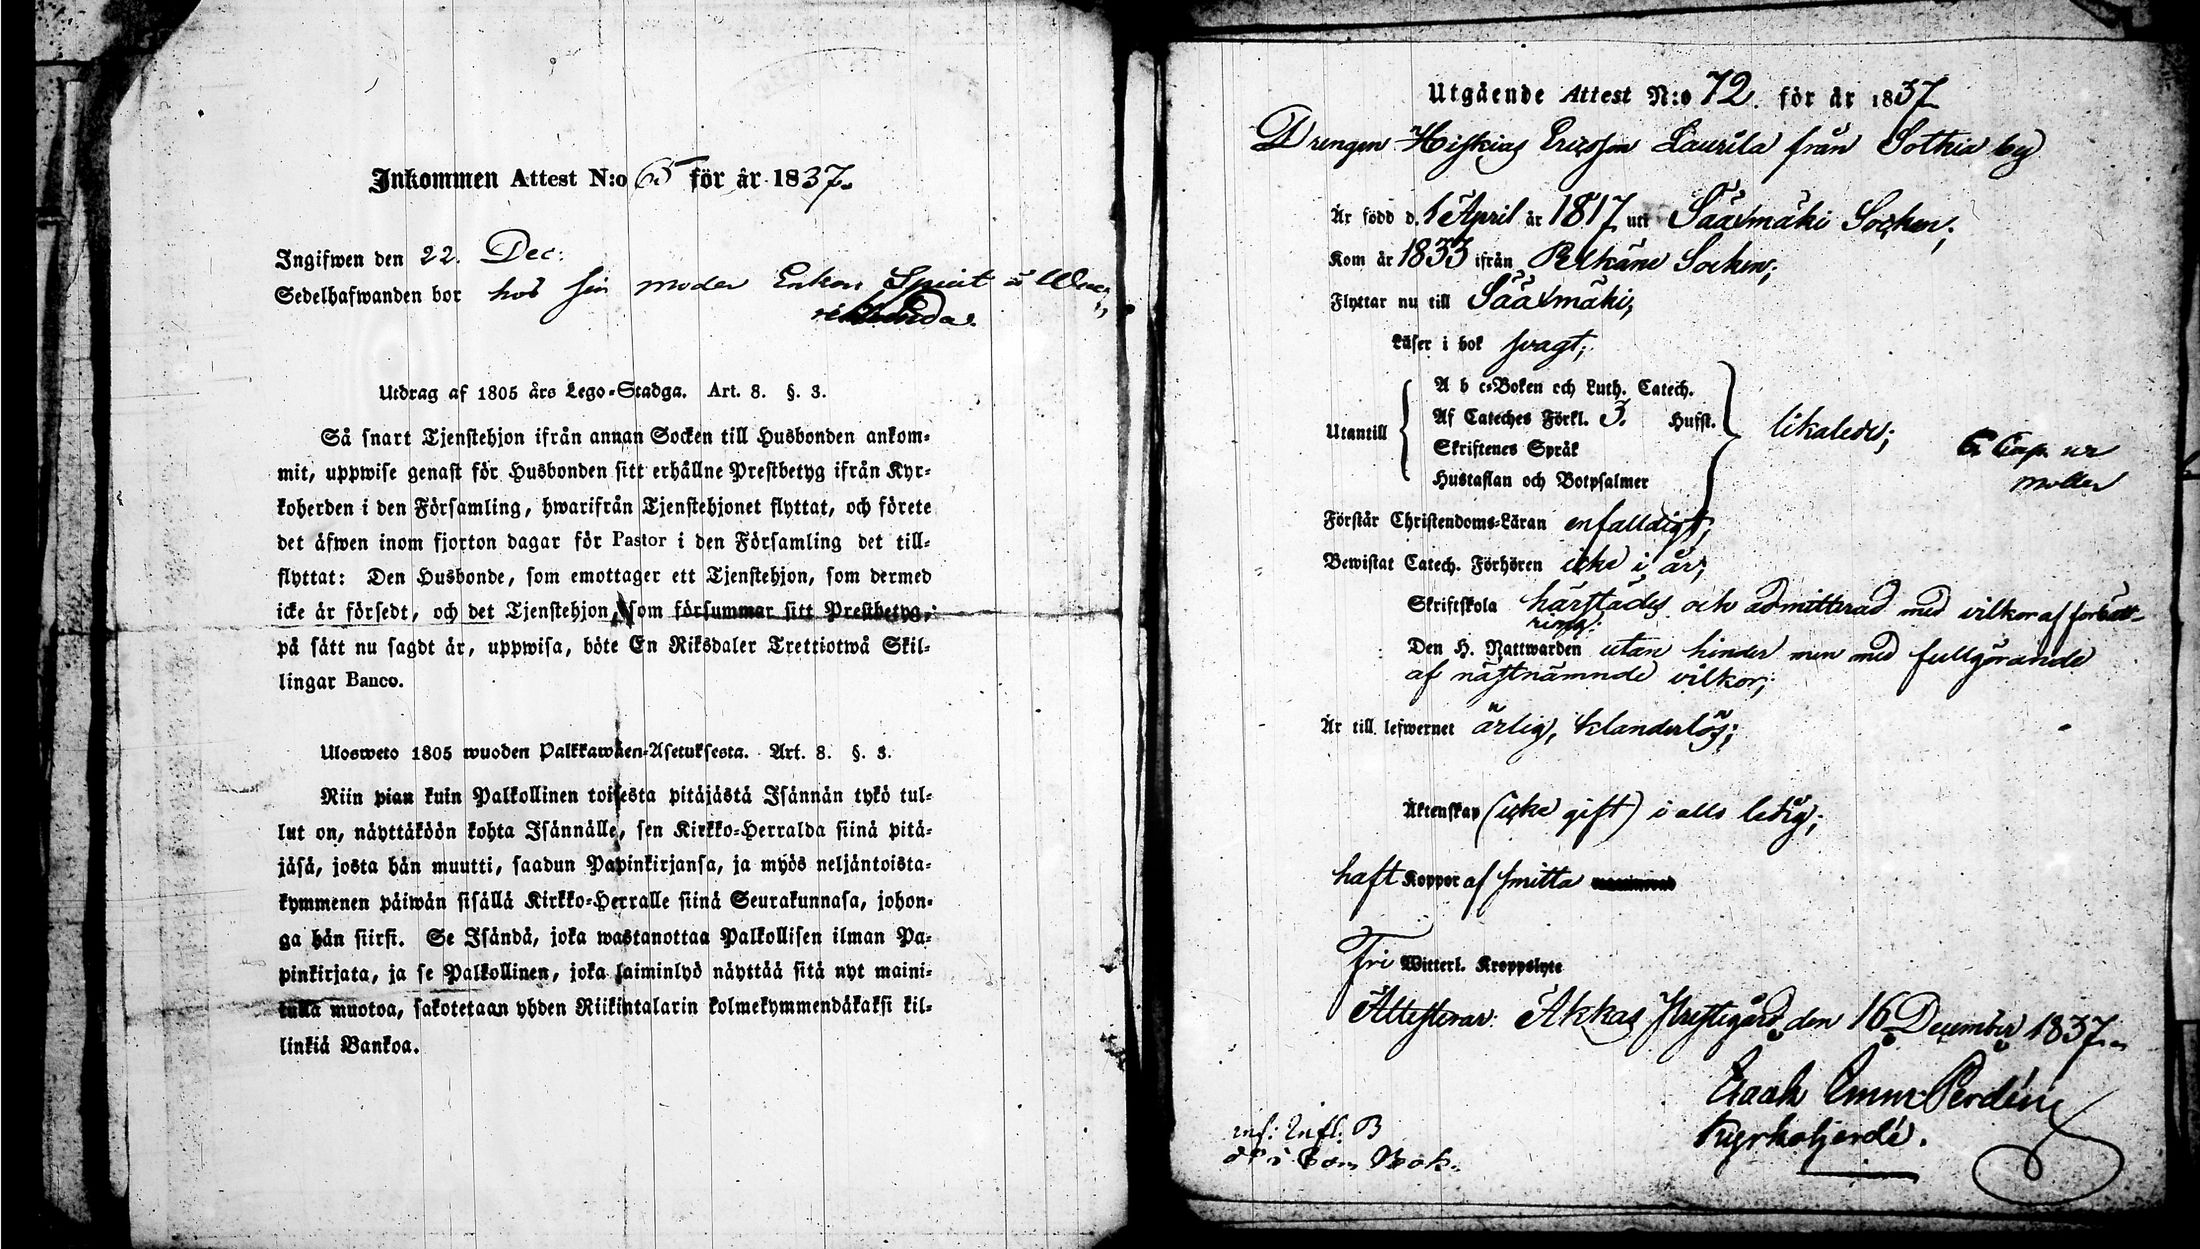 Inkommen Attest N:o 65 för år 1837.
Ingifwen den 22. Dec:
Sedelhafwanden bor hos sin moder Enkan Spirit å
Utdrag af 1805 års Lego-Stadga. Art. 8. §. 3.
Så snart Tjenstehjon ifrån annan Socken till Husbonden ankom-
mit, uppwise genast för Husbonden sitt erhållne Prestbetyg ifrån Kyr-
koherden i den Församling, hwarifrån Tjenstehjonet flyttat, och förete
det äfwen inom fjorton dagar för Pastor i den Församling det till-
flyttat: Den Husbonde, som emottager ett Tjenstehjon, som dermed
icke är försedt, och det Tjenstehjon, som försummar sitt Prestbetyg,
på sätt nu sagdt är, uppwisa, böte En Riksdaler Trettiotwå Skil-
lingar Banco.
Ulosweto 1805 wuoden Palkkawäen-Asetuksesta. Art. 8. §. 3.
Niin pian kuin Palkollinen toisesta pitäjästä Isännän tykö tul-
lut on, näyttäköön kohta Isännälle, sen Kirkko-Herralda siinä pitä-
jäsä, josta hän muutti, saadun Papinkirjansa, ja myös neljäntoista-
kymmenen päiwän sisällä Kirkko-Herralle siinä Seurakunnasa, johon-
ga hän siirsi. Se Isändä, joka wastanottaa Palkollisen ilman Pa-
pinkirjata, ja se Palkollinen, joka laiminlyö näyttää sitä nyt maini-
tulla muotoa, sakotetaan yhden Riikintalarin kolmekymmendäkaksi kil-
linkiä Bankoa.
Utgående Attest N:o 72. för år 1837
Drengen Hiskias Ericsson Laurila från Sotkia by
Är född d. 1 April år 1817 uti Sääxmäki Socken;
Kom år 1833 ifrån Pelkäne Socken;
Flyttar nu till Sääxmäki;
Läser i bok svagt;
Utantill
A b c-Boken och Luth. Catech.
Af Cateches Förkl. 3. Hufst.
Skriftenes Språk
Hustaflan och Botpsalmer
likaledes;
6 Cap. ur
Möller
Förstår Christendoms-Läran enfalldigt;
Bewistat Catech. Förhören icke i år;
Skriftskola härstädes och admitterad med vilkor af förbätt-
ring:
Den H. Nattwarden utan hinder men med fullgörande
af nästnämnde vilkor;
Är till lefwernet ärlig, klanderlös;
Äktenskap (icke gift) i alls ledig;
haft Koppor af smitta
Fri Witterl. Kroppslyte
Attesterar: Akkas Prestegård den 16 December 1837.
Isaak Emnr Perdén
Kyrkoherde.
inf: Infl. B
do i Com. Bok.